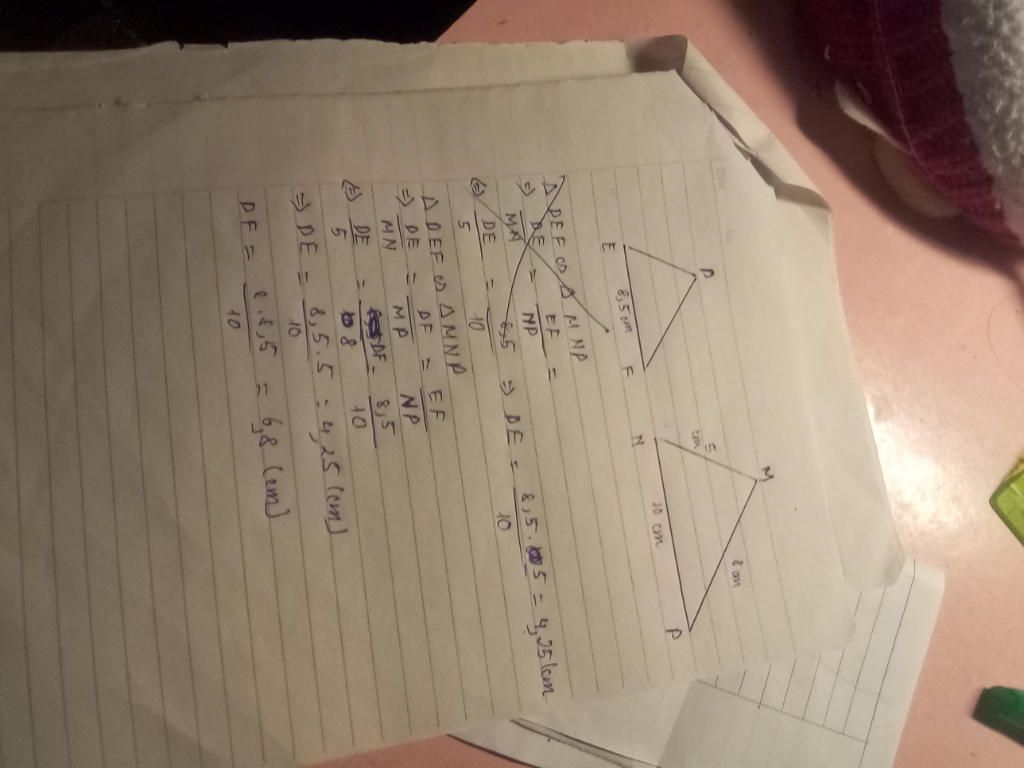 D
M
5 cm
8 cm
E 8,5 cm F
N 10 cm P
Δ DEF ∽ Δ MNP
=> DE/MN = EF/NP =
<=> DE/5 = 8,5/10 => DE = 8,5.5/10 = 4,25 (cm
Δ DEF ∽ Δ MNP
=> DE/MN = DF/MP = EF/NP
<=> DE/5 = DF/8 = 8,5/10
=> DE = 8,5.5/10 = 4,25 (cm)
DF = 8.8,5/10 = 6,8 (cm)